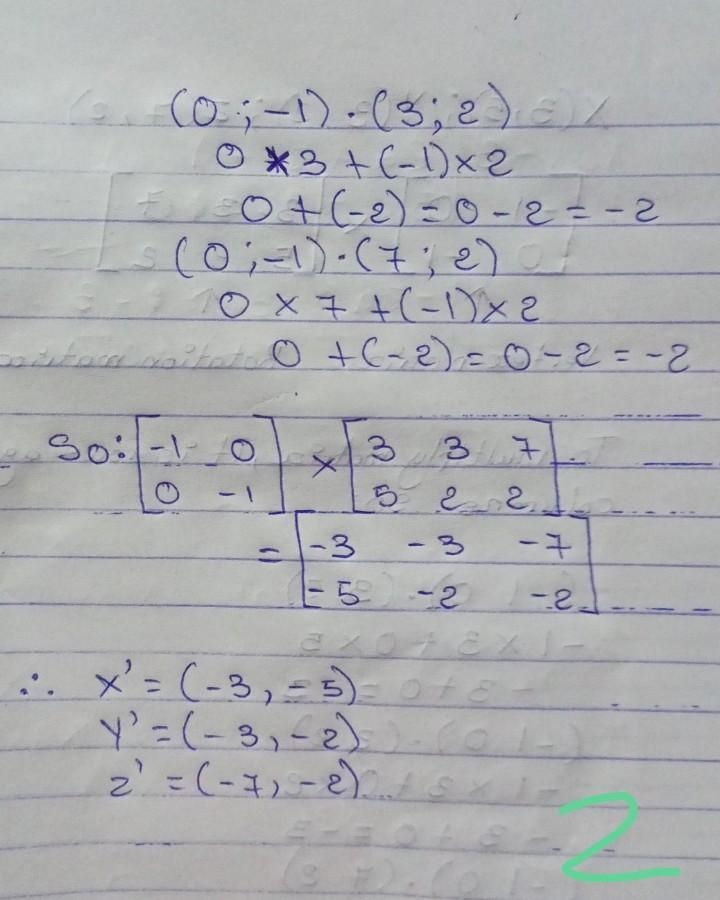 (0 ; -1) · (3 ; 2)
0 * 3 + (-1) × 2
0 + (-2) = 0 - 2 = -2
(0 ; -1) · (7 ; 2)
0 × 7 + (-1) × 2
0 + (-2) = 0 - 2 = -2
So: [-1 0] × [3 3 7]
[0 -1] [5 2 2]
= [-3 -3 -7]
[-5 -2 -2]
∴ x' = (-3, -5)
y' = (-3, -2)
z' = (-7, -2)
2